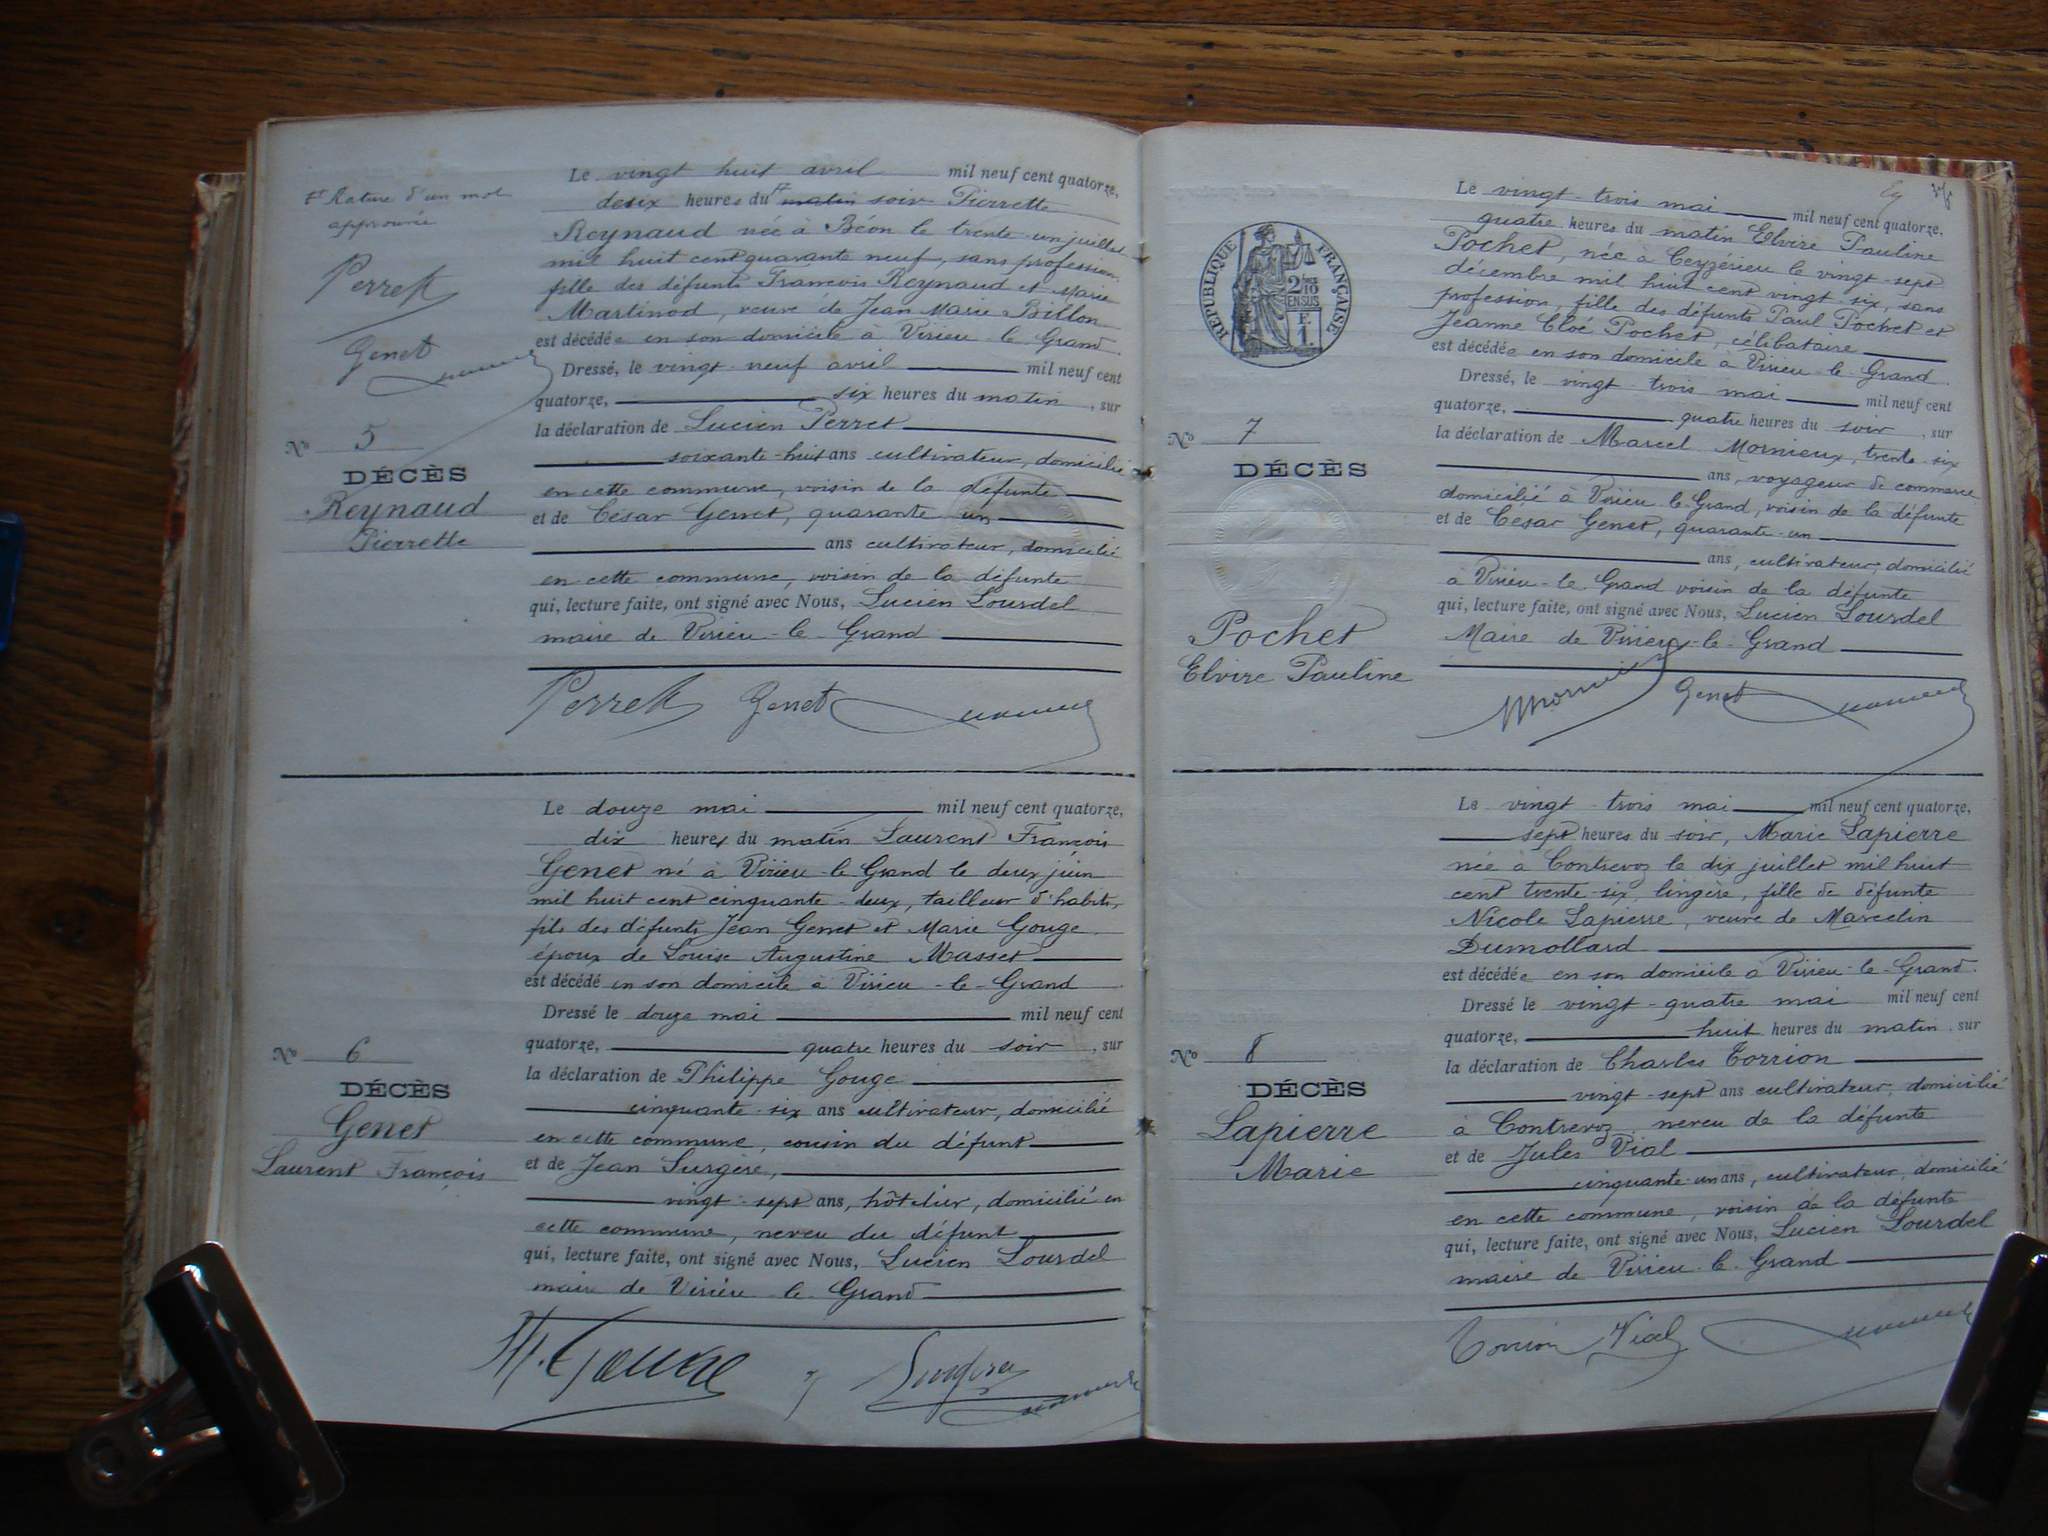 Rature d'un mot
approuvée
Perret
Genet
Le vingt huit avril mil neuf cent quatorze,
six heures du matin soir Pierrette
Reynaud née à Béon le trente un juillet
mil huit cent quarante neuf, sans profession,
fille des défunts François Reynaud et Marie
Martinod, veuve de Jean Marie Billon
est décédée en son domicile à Virieu-le-Grand.
Dressé, le vingt-neuf avril mil neuf cent
quatorze, six heures du matin, sur
la déclaration de Lucien Perret
soixante-huit ans cultivateur, domicilié
en cette commune, voisin de la défunte
et de César Genet, quarante un
ans cultivateur, domicilié
en cette commune, voisin de la défunte
qui, lecture faite, ont signé avec Nous, Lucien Lourdel
maire de Virieu-le-Grand
Nº 5
DÉCÈS
Reynaud
Pierrette
Perret Genet
Le douze mai mil neuf cent quatorze,
dix heures du matin Laurent François
Genet né à Virieu-le-Grand le deux juin
mil huit cent cinquante-deux, tailleur d'habits,
fils des défunts Jean Genet et Marie Gouge
époux de Louise Augustine Masset
est décédé en son domicile à Virieu-le-Grand
Dressé le douze mai mil neuf cent
quatorze, quatre heures du soir, sur
la déclaration de Philippe Gouge
cinquante-six ans cultivateur, domicilié
en cette commune, cousin du défunt
et de Jean Surgère,
vingt-sept ans, hôtelier, domicilié en
cette commune, neveu du défunt
qui, lecture faite, ont signé avec Nous, Lucien Lourdel
maire de Virieu-le-Grand
Nº 6
DÉCÈS
Genet
Laurent François
Gouge
RÉPUBLIQUE FRANÇAISE
2/10
EN SUS
F.
1.
Le vingt-trois mai mil neuf cent quatorze,
quatre heures du matin Elvire Pauline
Pochet, née à Ceyzérieu le vingt-sept
décembre mil huit cent vingt-six, sans
profession, fille des défunts Paul Pochet et
Jeanne Cloé Pochet, célibataire
est décédée en son domicile à Virieu-le-Grand.
Dressé, le vingt-trois mai mil neuf cent
quatorze, quatre heures du soir, sur
la déclaration de Marcel Mornieux, trente-six
ans, voyageur de commerce
domicilié à Virieu-le-Grand, voisin de la défunte
et de César Genet, quarante-un
ans, cultivateur, domicilié
à Virieu-le-Grand voisin de la défunte
qui, lecture faite, ont signé avec Nous, Lucien Lourdel
Maire de Virieu-le-Grand
Nº 7
DÉCÈS
Pochet
Elvire Pauline
Genet
Le vingt-trois mai mil neuf cent quatorze,
sept heures du soir, Marie Lapierre
née à Contrevoz le dix juillet mil huit
cent trente-six, lingère, fille de défunte
Nicole Lapierre, veuve de Marcelin
Dumollard
est décédée en son domicile à Virieu-le-Grand.
Dressé le vingt-quatre mai mil neuf cent
quatorze, huit heures du matin, sur
la déclaration de Charles Torrion
vingt-sept ans cultivateur, domicilié
à Contrevoz, neveu de la défunte
et de Jules Vial
cinquante-un ans, cultivateur, domicilié
en cette commune, voisin de la défunte
qui, lecture faite, ont signé avec Nous, Lucien Lourdel
maire de Virieu-le-Grand
Nº 8
DÉCÈS
Lapierre
Marie
Torrion Vial